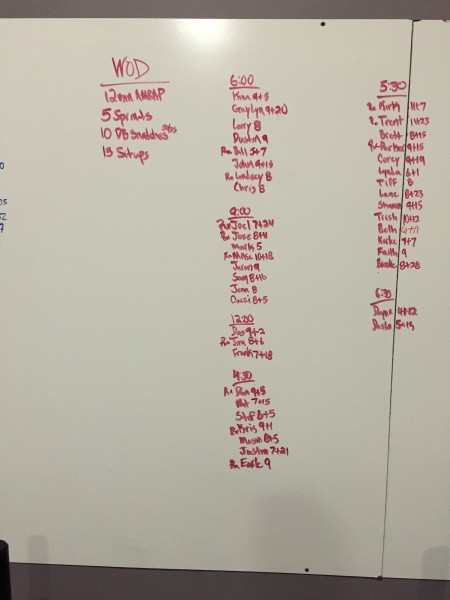 WOD
12 min AMRAP
5 Sprints
10 DB Snatches
15 Situps
6:00
9+5
Graylyn 9+20
Larry 8
Dustin 9
Rx Bill 5+7
John 9+15
Rx Lindsey 8
Chris 8
9:00
Rx Joel 7+24
Rx Jose 8+11
Mark 5
Rx Mike 10+18
Jason 9
8+16
Jenn 8
Cassi 8+5
12:00
9+2
Rx Jim 8+6
Frank 7+18
4:30
Rx Dan 9+5
7+15
Stef 8+5
Rx Kris 9+1
Mason 8+5
Justin 7+21
Rx Earle 9
5:30
Rx Kirk 11+7
Rx Trent 11+23
Brett 8+15
Rx Parker 9+15
Corey 9+19
Lynda 6+1
Tiff 8
Lane 8+23
9+15
Trish 10+12
Beth 6+11
9+7
Faith 9
Brooke 8+28
6:30
4+12
5+15